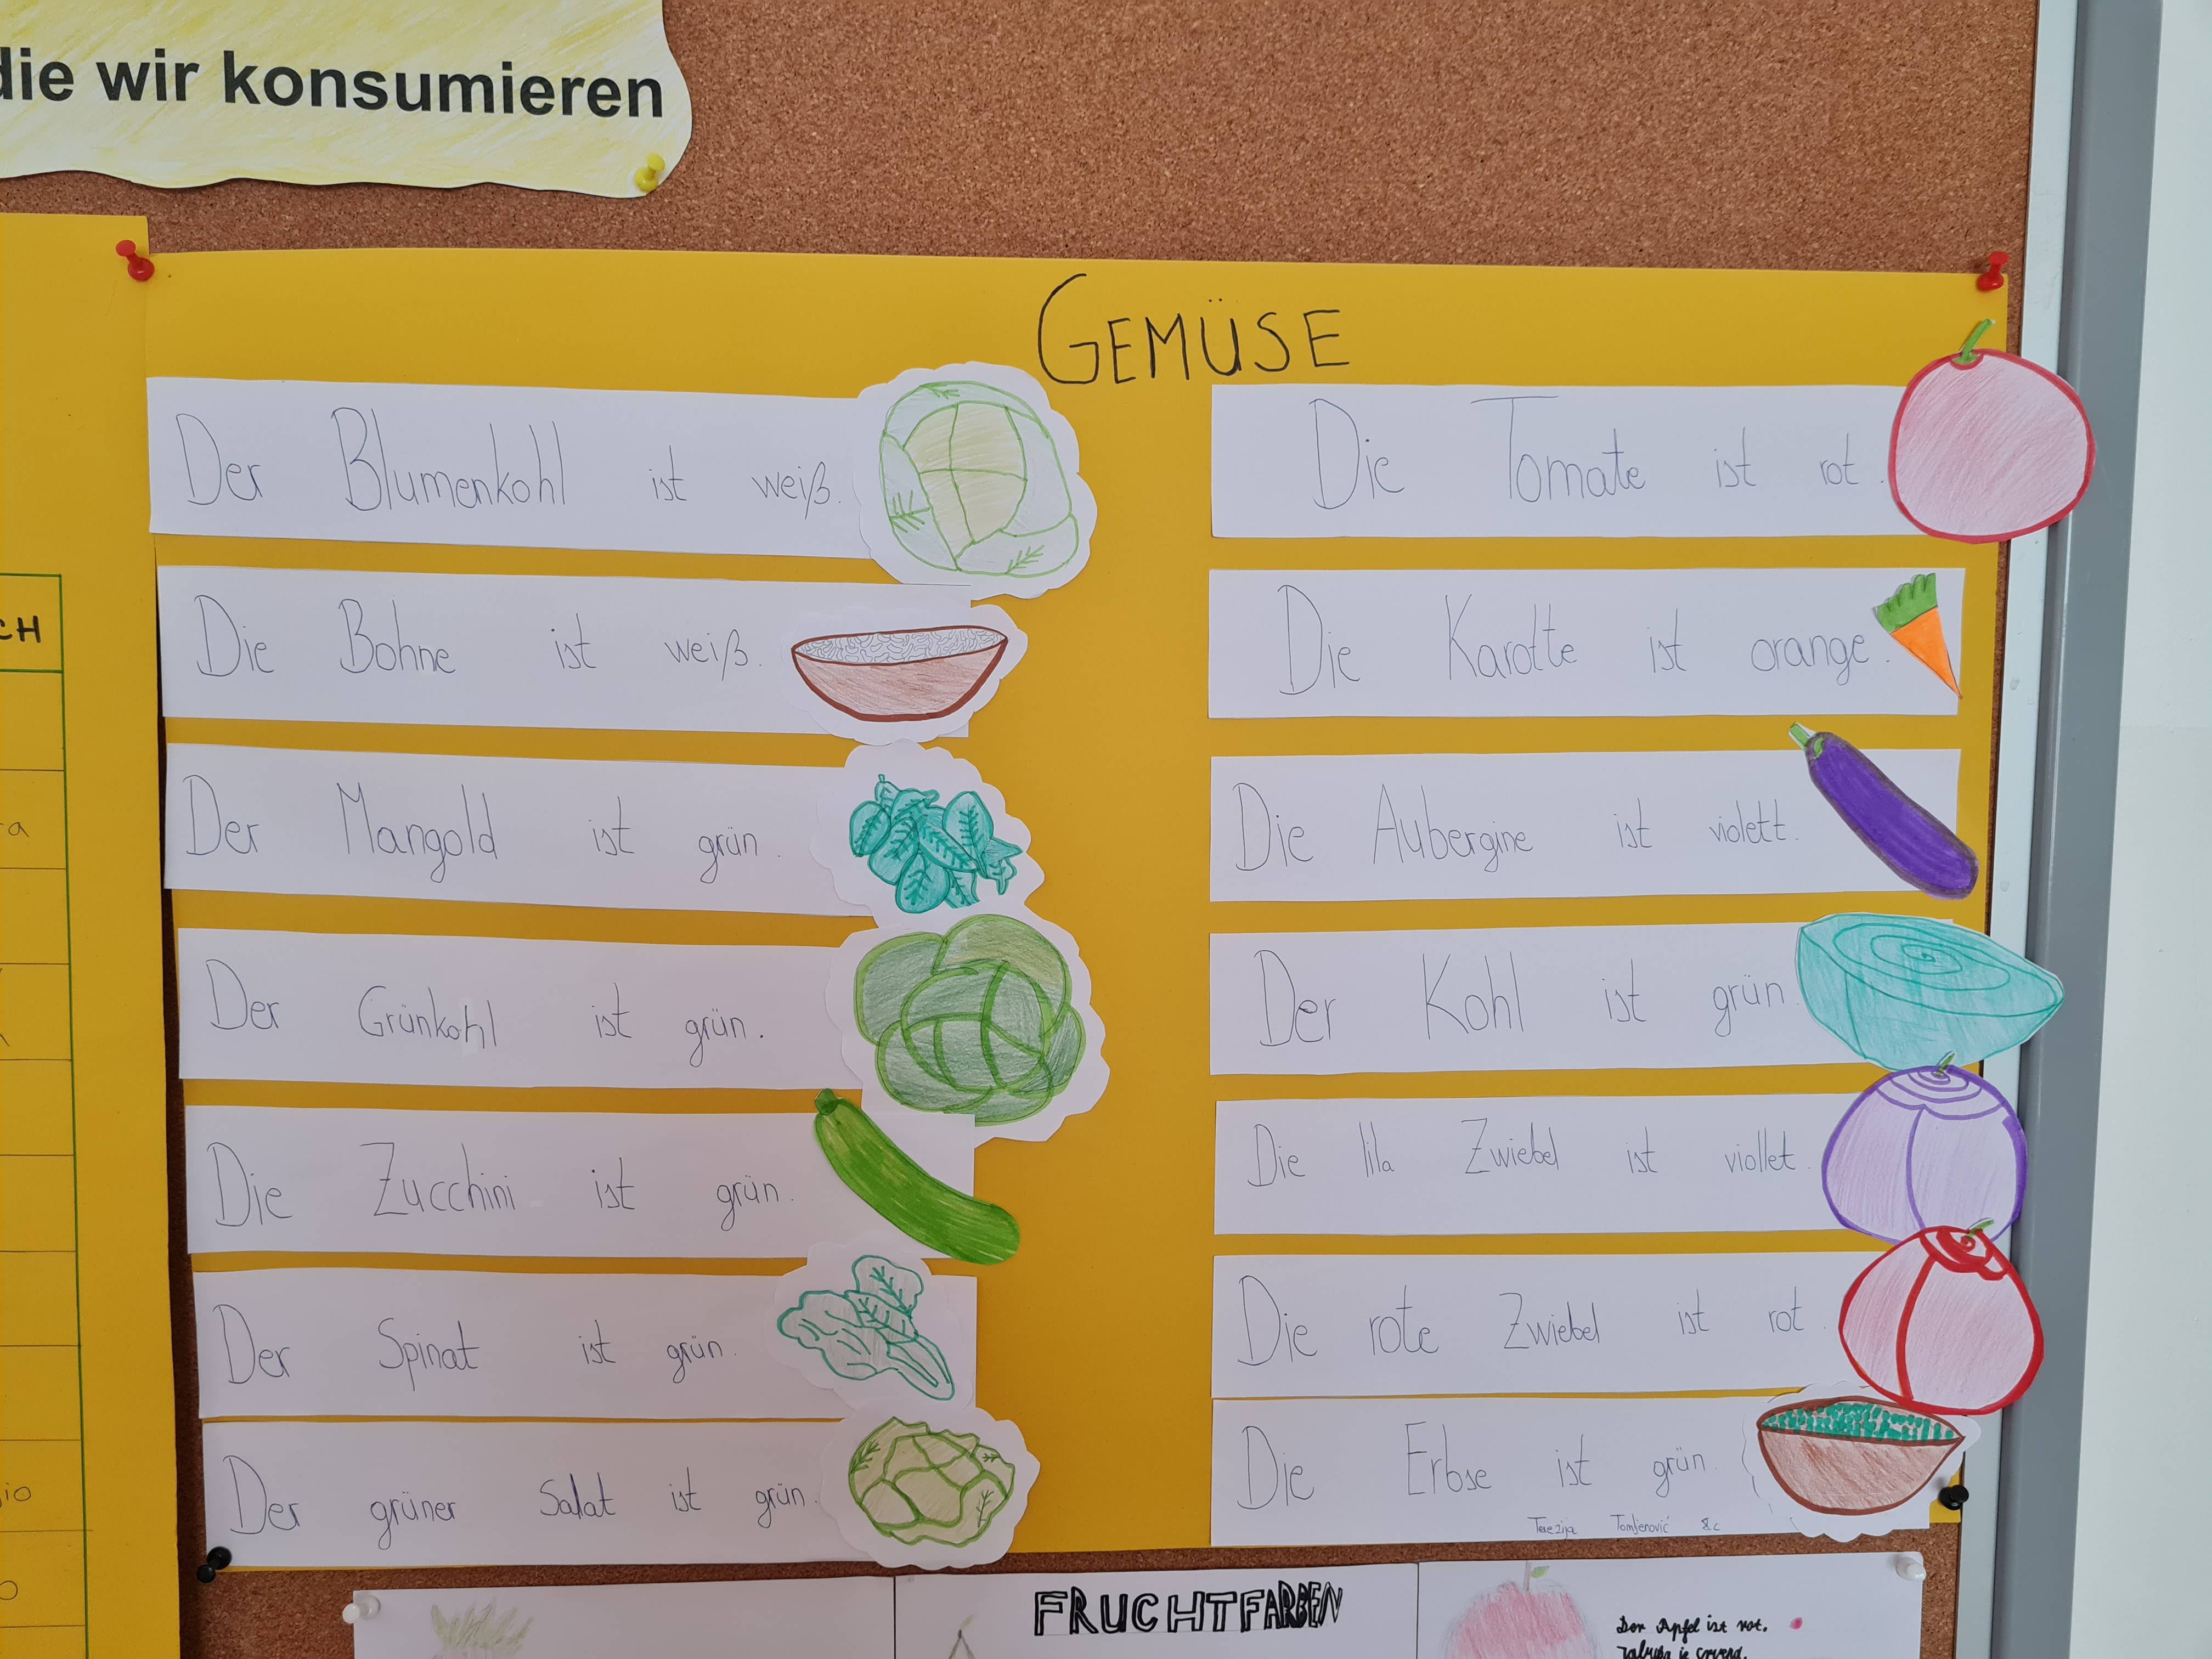 die wir konsumieren
CH
GEMÜSE
Der Blumenkohl ist weiß.
Die Bohne ist weiß.
Der Mangold ist grün.
Der Grünkohl ist grün.
Die Zucchini ist grün.
Der Spinat ist grün.
Der grüner Salat ist grün.
Die Tomate ist rot.
Die Karotte ist orange.
Die Aubergine ist violett.
Der Kohl ist grün.
Die lila Zwiebel ist viollet.
Die rote Zwiebel ist rot.
Die Erbse ist grün.
Terezija Tomljenović 8.c
FRUCHTFARBEN
Der Apfel ist rot.